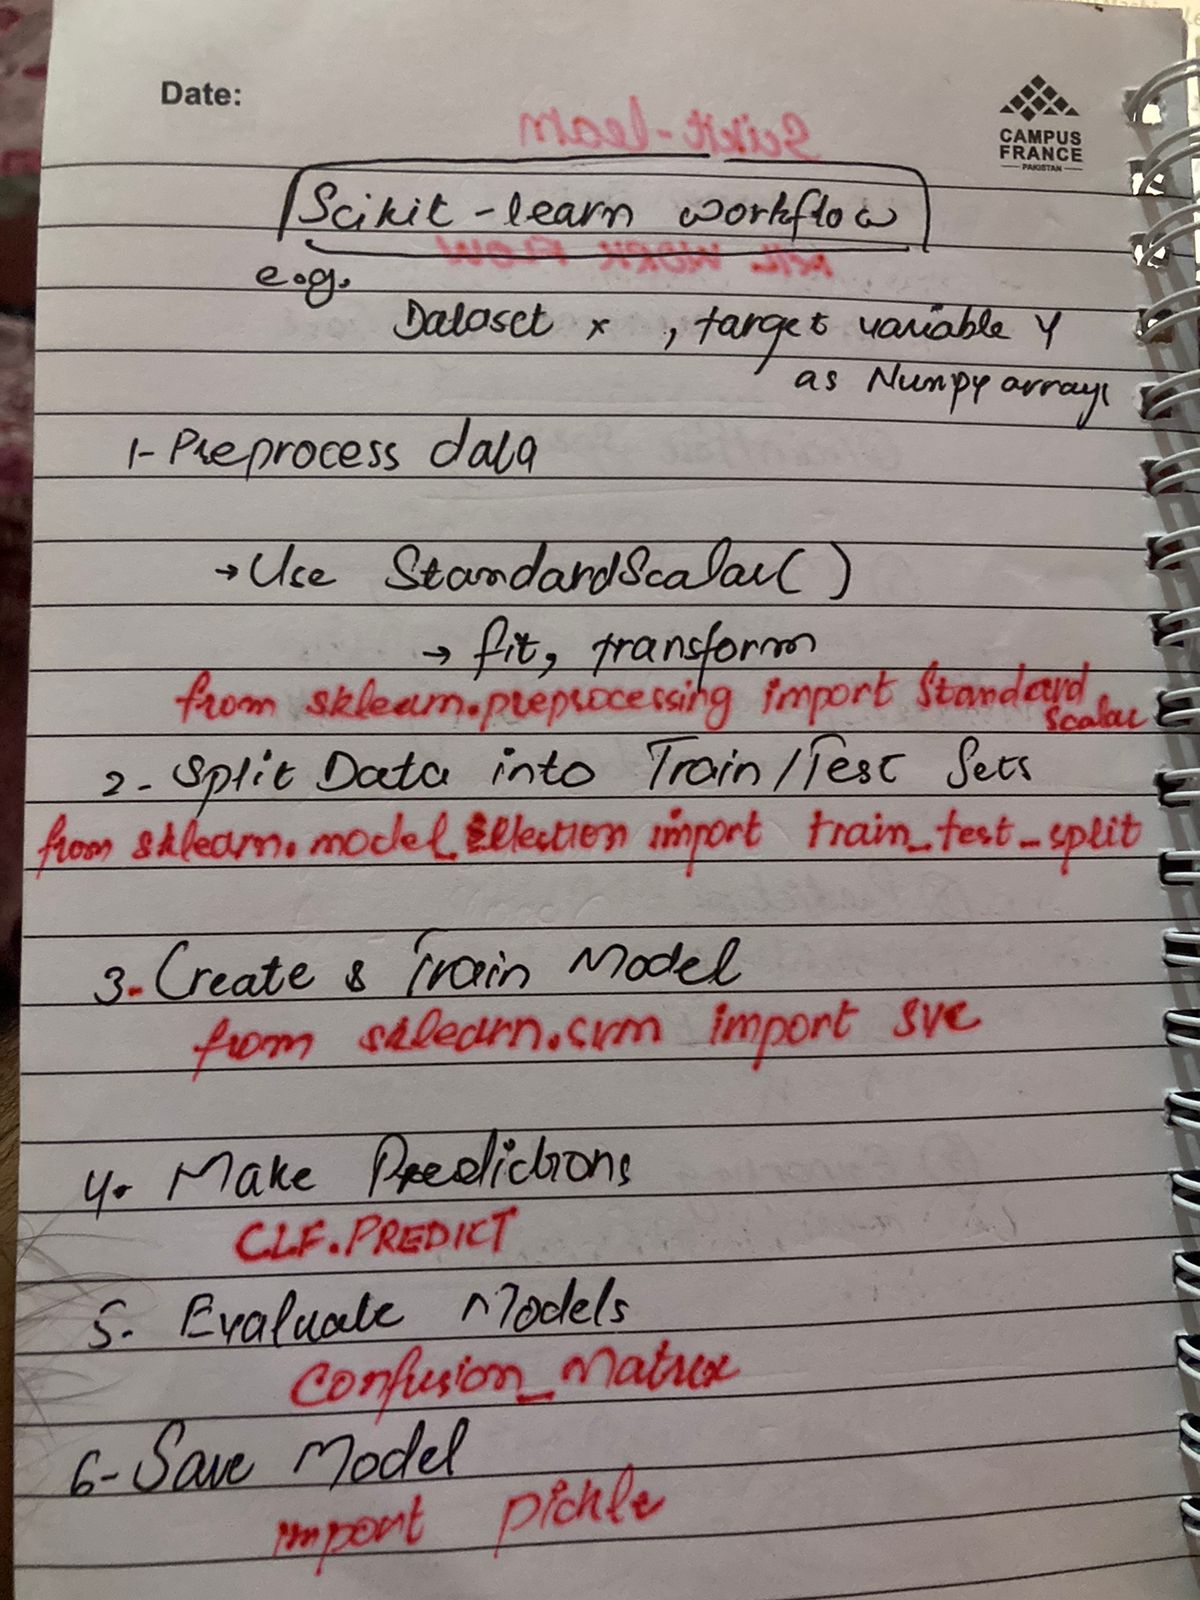 Date:
CAMPUS
FRANCE
PAKISTAN
Scikit-learn
Scikit-learn workflow
ML WORK FLOW
e.g.
Dataset x , target variable Y
as Numpy arrays
1- Preprocess data
→ Use StandardScalar()
→ fit, transform
from sklearn.preprocessing import Standard
Scalar
2- Split Data into Train/Test Sets
from sklearn.model_selection import train_test_split
3- Create & Train Model
from sklearn.svm import SVC
4. Make Predictions
CLF.PREDICT
5. Evaluate Models
Confusion_Matrix
6- Save Model
import pickle